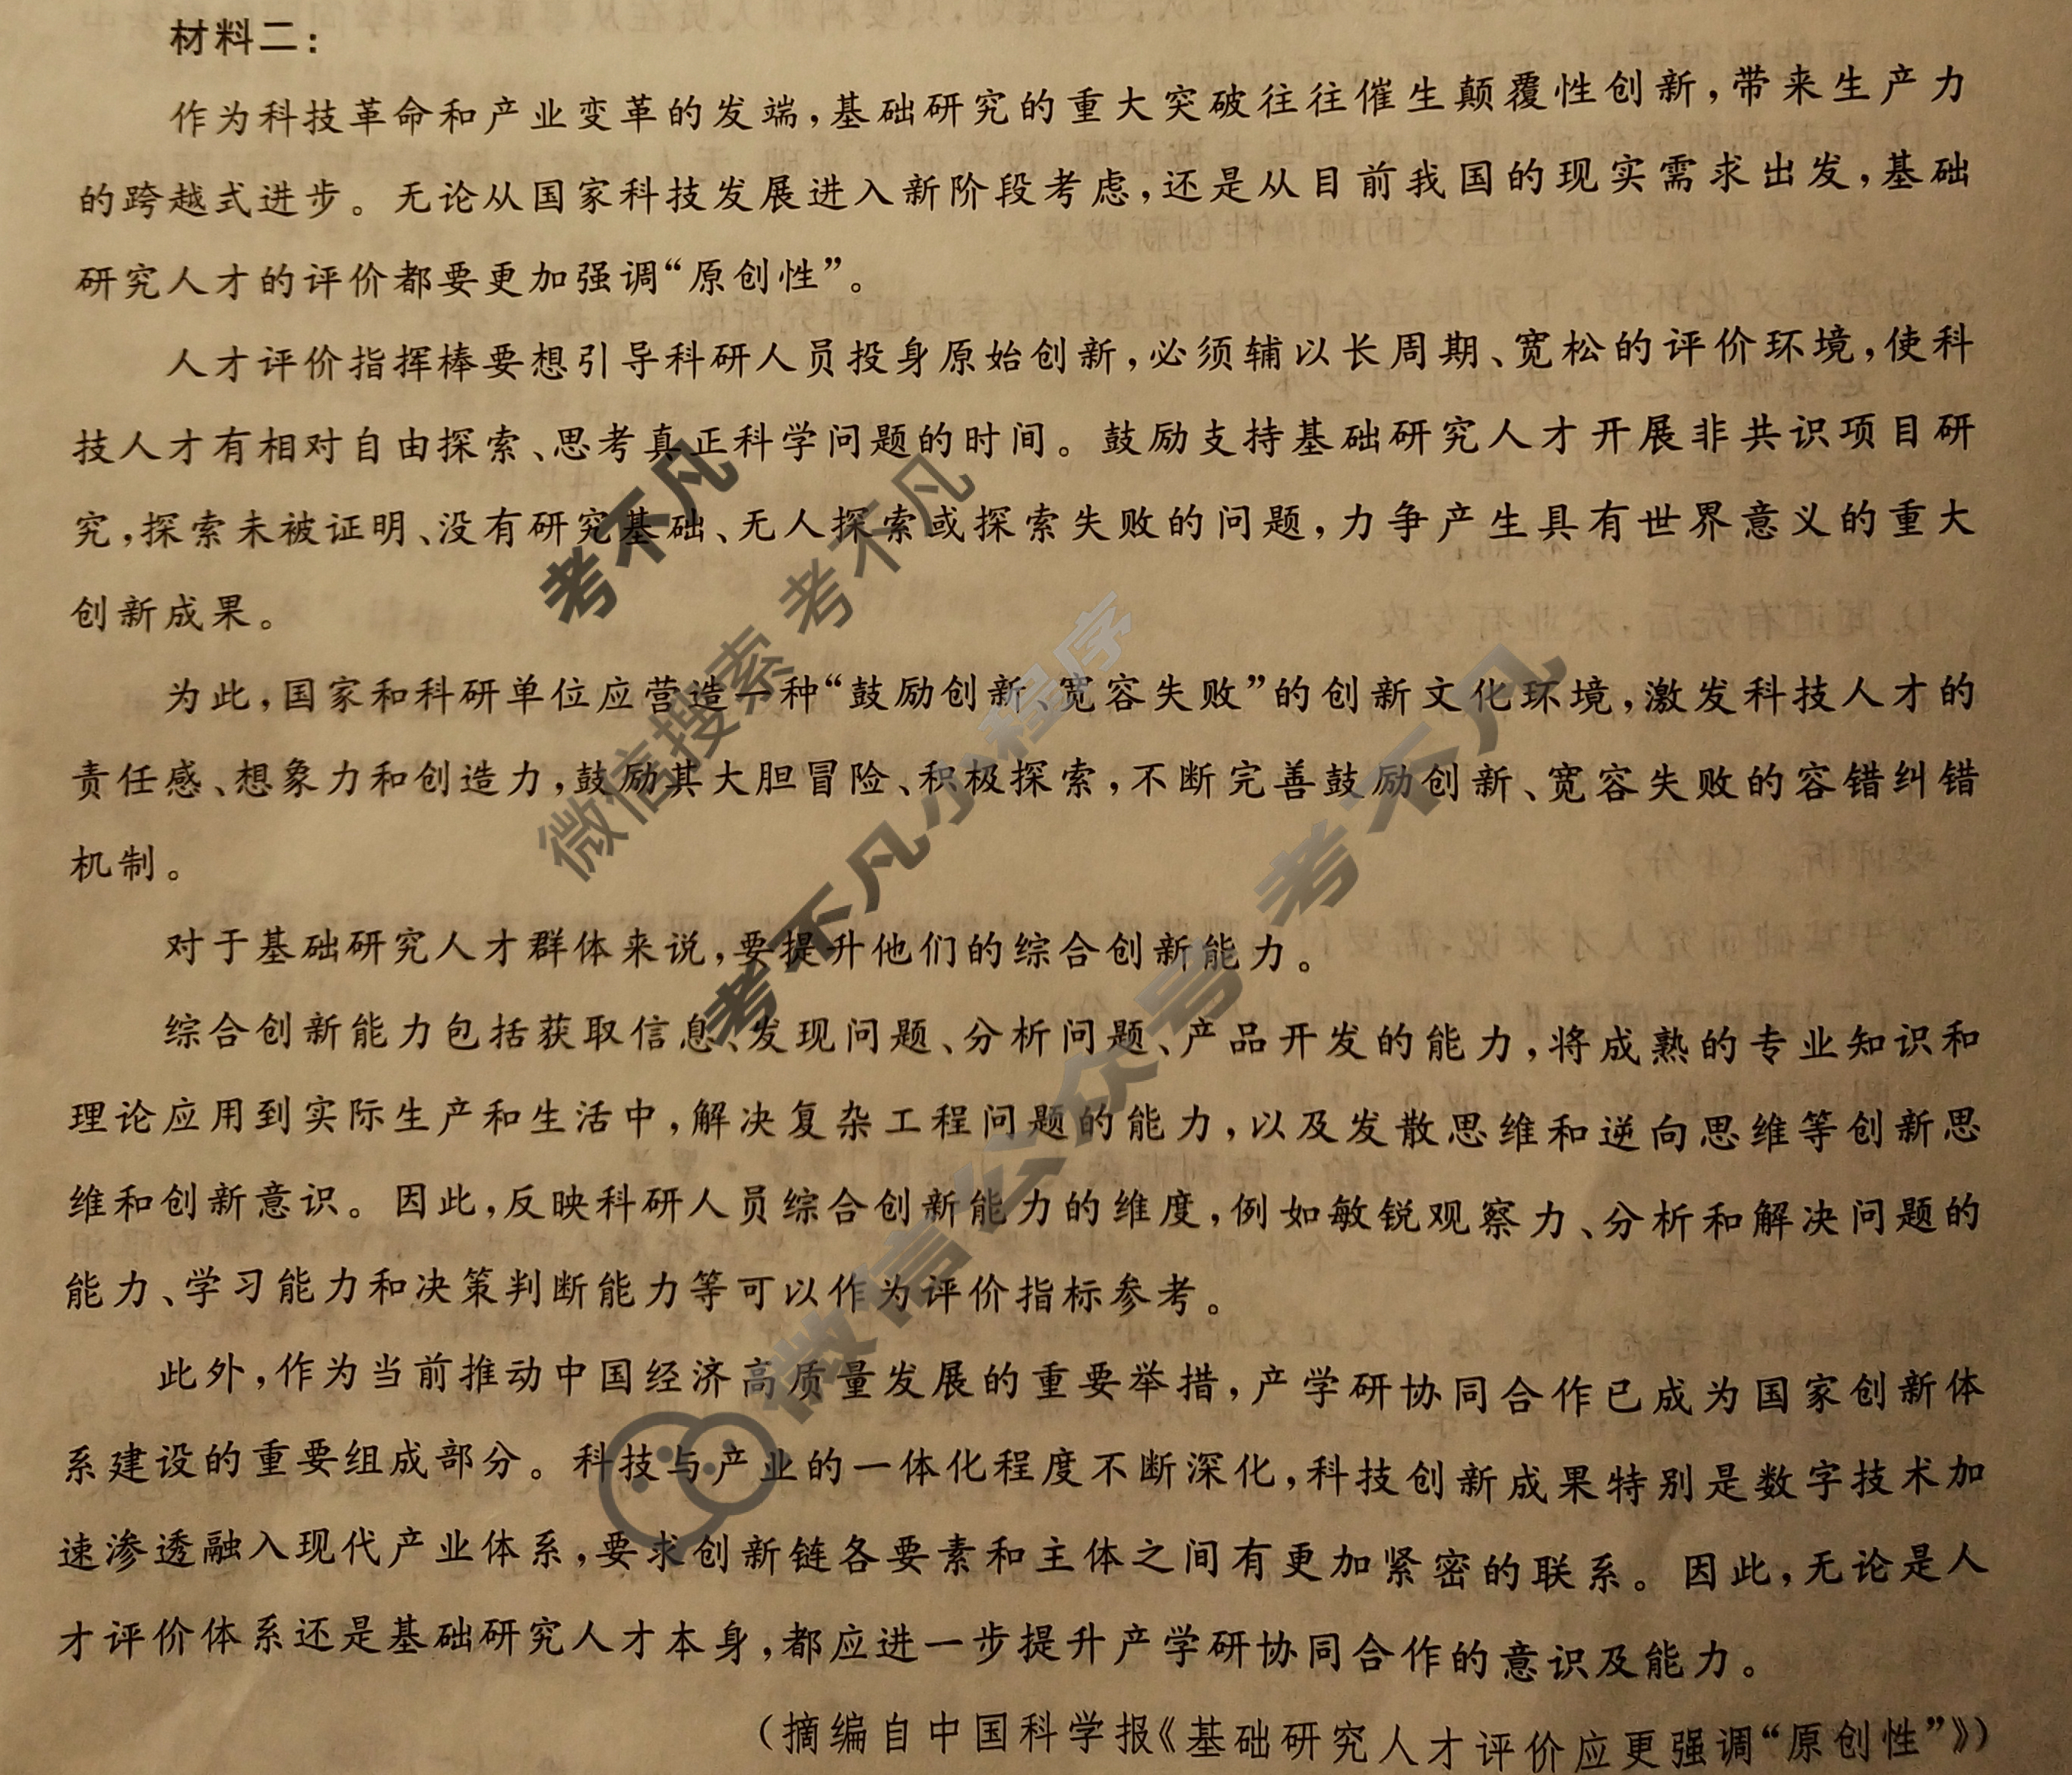 材料二：
作为科技革命和产业变革的发端，基础研究的重大突破往往催生颠覆性创新，带来生产力
的跨越式进步。无论从国家科技发展进入新阶段考虑，还是从目前我国的现实需求出发，基础
研究人才的评价都要更加强调“原创性”。
人才评价指挥棒要想引导科研人员投身原始创新，必须辅以长周期、宽松的评价环境，使科
技人才有相对自由探索、思考真正科学问题的时间。鼓励支持基础研究人才开展非共识项目研
究，探索未被证明、没有研究基础、无人探索或探索失败的问题，力争产生具有世界意义的重大
创新成果。
为此，国家和科研单位应营造一种“鼓励创新、宽容失败”的创新文化环境，激发科技人才的
责任感、想象力和创造力，鼓励其大胆冒险、积极探索，不断完善鼓励创新、宽容失败的容错纠错
机制。
对于基础研究人才群体来说，要提升他们的综合创新能力。
综合创新能力包括获取信息、发现问题、分析问题、产品开发的能力，将成熟的专业知识和
理论应用到实际生产和生活中，解决复杂工程问题的能力，以及发散思维和逆向思维等创新思
维和创新意识。因此，反映科研人员综合创新能力的维度，例如敏锐观察力、分析和解决问题的
能力、学习能力和决策判断能力等可以作为评价指标参考。
此外，作为当前推动中国经济高质量发展的重要举措，产学研协同合作已成为国家创新体
系建设的重要组成部分。科技与产业的一体化程度不断深化，科技创新成果特别是数字技术加
速渗透融入现代产业体系，要求创新链各要素和主体之间有更加紧密的联系。因此，无论是人
才评价体系还是基础研究人才本身，都应进一步提升产学研协同合作的意识及能力。
（摘编自中国科学报《基础研究人才评价应更强调“原创性”》）
考不凡
微信搜索 考不凡
考不凡小程序
微信公众号 考不凡